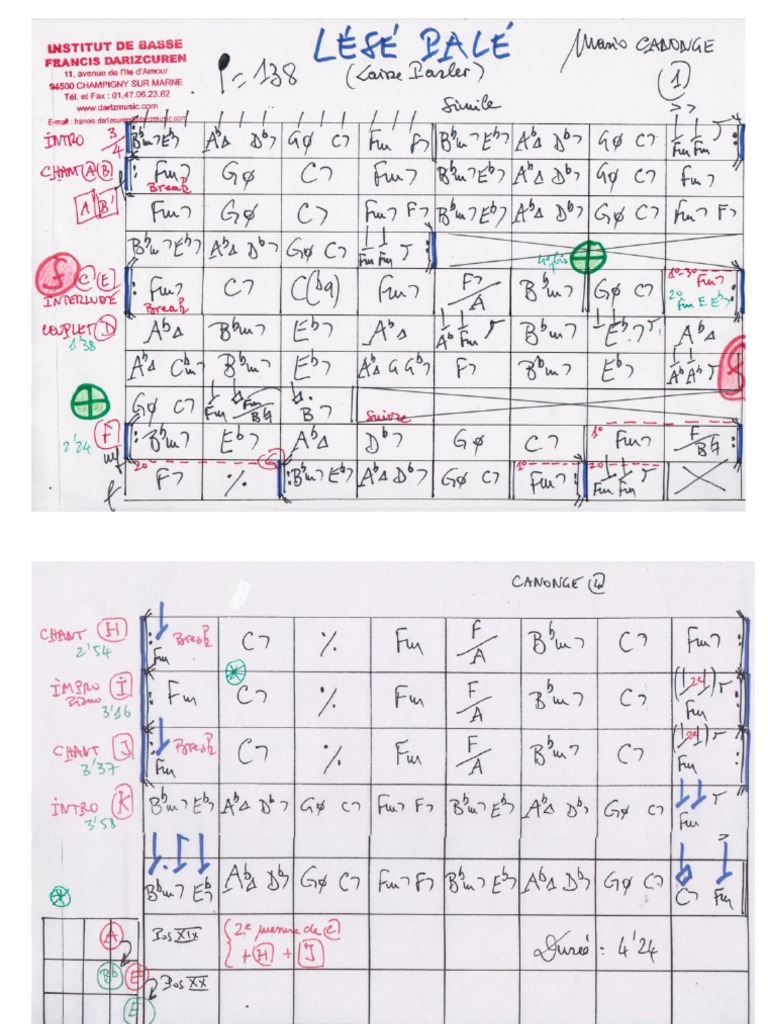 INSTITUT DE BASSE
FRANCIS DARIZCUREN
11, avenue de l'Ile d'Amour
94500 CHAMPIGNY SUR MARNE
Tél. et Fax : 01.47.06.23.62
www.darizmusic.com
E-mail : francis.darizcuren@darizmusic.com
LÉSÉ PALÉ
(Laisse Parler)
= 138
Mario CANONGE
1
Simile
INTRO 3/4 Bbm7 Eb7 AbΔ Db7 Gø C7 Fm F7 Bbm7 Eb7 AbΔ Db7 Gø C7 Fm Fm
CHANT A B Fm7 Break Gø C7 Fm7 Bbm7 Eb7 AbΔ Db7 Gø C7 Fm7
A' B' Fm7 Gø C7 Fm7 F7 Bbm7 Eb7 AbΔ Db7 Gø C7 Fm7 F7
Bbm7 Eb7 AbΔ Db7 Gø C7 Fm Fm 4e fois
C E INTERLUDE Fm7 Break C7 C(b9) Fm7 F7/A Bbm7 Gø C7 1°-3° Fm7 2° Fm E Eb7
COUPLET D 1'38 AbΔ Bbm7 Eb7 AbΔ Ab Fm7 Bbm7 Eb7 AbΔ
AbΔ Cbm7 Bbm7 Eb7 AbΔ G Gb7 F7 Bbm7 Eb7 Ab Ab
Gø C7 Fm Fm/B♮ B7 Suivre
F 2'24 mf Bbm7 Eb7 AbΔ Db7 Gø C7 1° Fm7 F/B♮
f 2° F7 % G Bbm7 Eb7 AbΔ Db7 Gø C7 1° Fm7 2° Fm Fm
CANONGE 4
CHANT H 2'54 Fm Break C7 % Fm F/A Bbm7 C7 Fm7
IMPRO Piano I 3'16 Fm C7 % Fm F/A Bbm7 C7 2e Fm
CHANT J 3'37 Fm Break C7 % Fm F/A Bbm7 C7 2e Fm
INTRO K 3'58 Bbm7 Eb7 AbΔ Db7 Gø C7 Fm7 F7 Bbm7 Eb7 AbΔ Db7 Gø C7 Fm
Bbm7 Eb7 AbΔ Db7 Gø C7 Fm7 F7 Bbm7 Eb7 AbΔ Db7 Gø C7 Fm
A Pos XIX 2e mesure de C
Bb E + H + J
Durée : 4'24
Pos XX
E